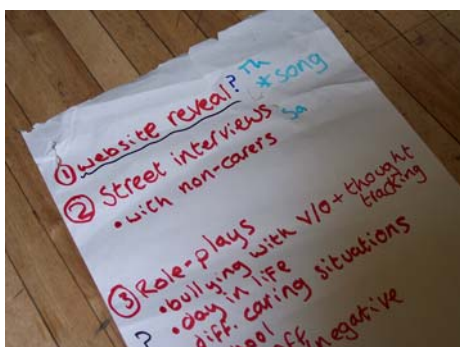 ① website reveal?
Th
* song
Sa
② Street interviews
• with non-carers
③ Role-plays
• bullying with V/O + thought
tracking
• day in life
diff. caring situations
?
negative